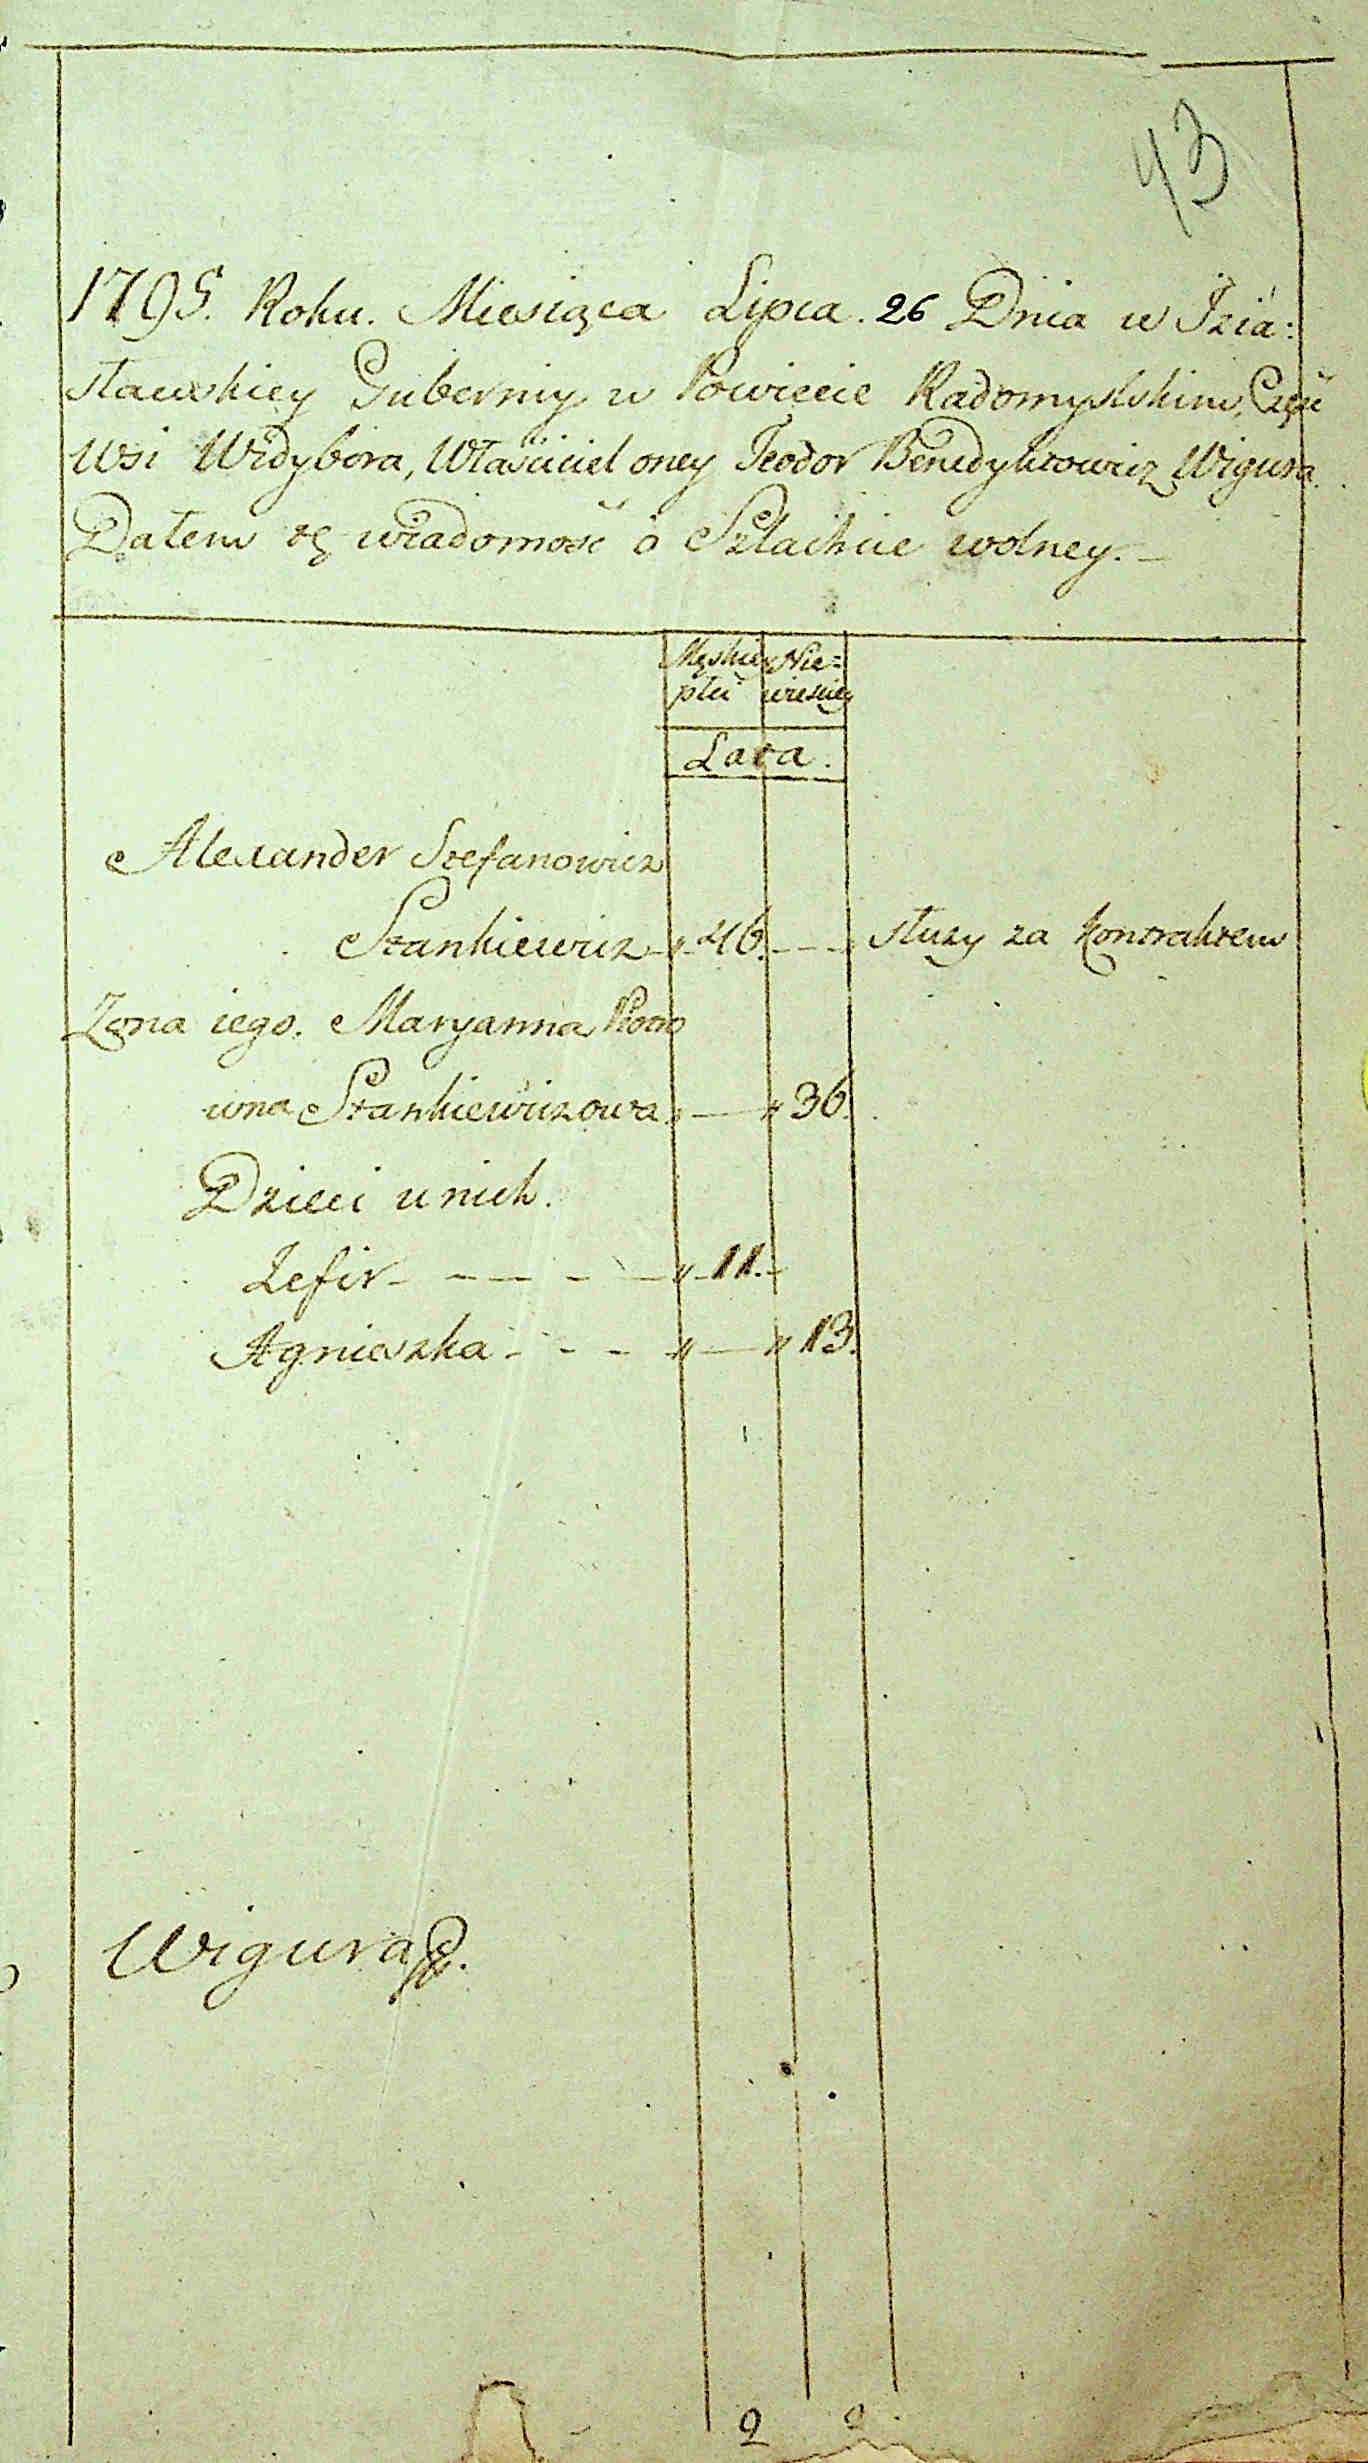 43
1795. Roku. Miesiąca Lipca. 26 Dnia w Izia:
sławskiey Guberniy w Powiecie Radomyslskim, Część
Wsi Widybora, Właściciel oney Teodor Benedyktowicz Wigura.
Dałem tę wiadomość o Szlachcie wolney. –
Męskiey Nie=
płci wiesciey
Lata.
Alexander Stefanowicz
Stankiewicz „ 46. – – – służy za Kontraktem
Zona iego. Maryanna Piotro
wna Stankiewiczowa. „ — „ 36.
Dzieci u nich.
Zefir - - - - - „ 11. -
Agnieszka - - - - „ — „ 13.
Wigura
2 2